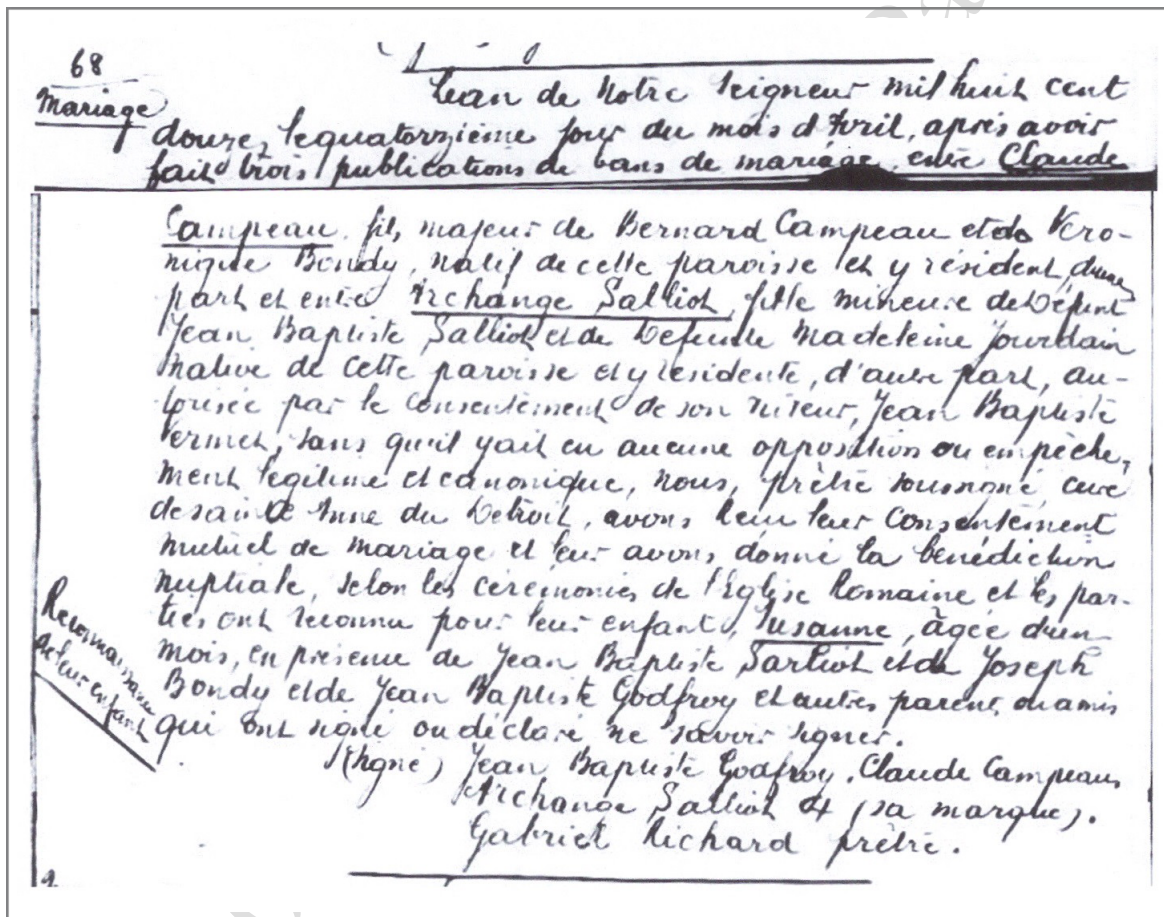 68
Mariage
Lean de Notre Seigneur mil huit cent
douze, le quatorzième jour du mois d'Avril, après avoir
fait trois publications de bans de mariage, entre Claude
Campeau, fils majeur de Bernard Campeau et de Vero-
nique Bondy, natif de cette paroisse et y résident, d'une
part et entre Archange Salliot, fille mineure de Défunt
Jean Baptiste Salliot et de Defunte Madeleine Jourdain
native de cette paroisse et y residente, d'autre part, au-
torisée par le consentement de son tuteur, Jean Baptiste
Vermet, sans qu'il y ait eu aucune opposition ou empêche,
ment legitime et canonique, nous, prêtre soussigné, curé
de sainte Anne du Detroit, avons leur consentement
mutuel de mariage et leur avons donné la bénédiction
nuptiale, selon les cérémonies de l'Eglise Romaine et les par-
ties ont reconnu pour leur enfant, Susanne, âgée d'un
mois, en présence de Jean Baptiste Sarliot et de Joseph
Bondy et de Jean Baptiste Godfroy et autres parens, ou amis
qui ont signé ou déclaré ne savoir signer.
Reconnaissance
de leur enfant
(Signé) Jean Baptiste Godfroy. Claude Campeau
Archange Salliot (sa marque).
Gabriel Richard prêtre.